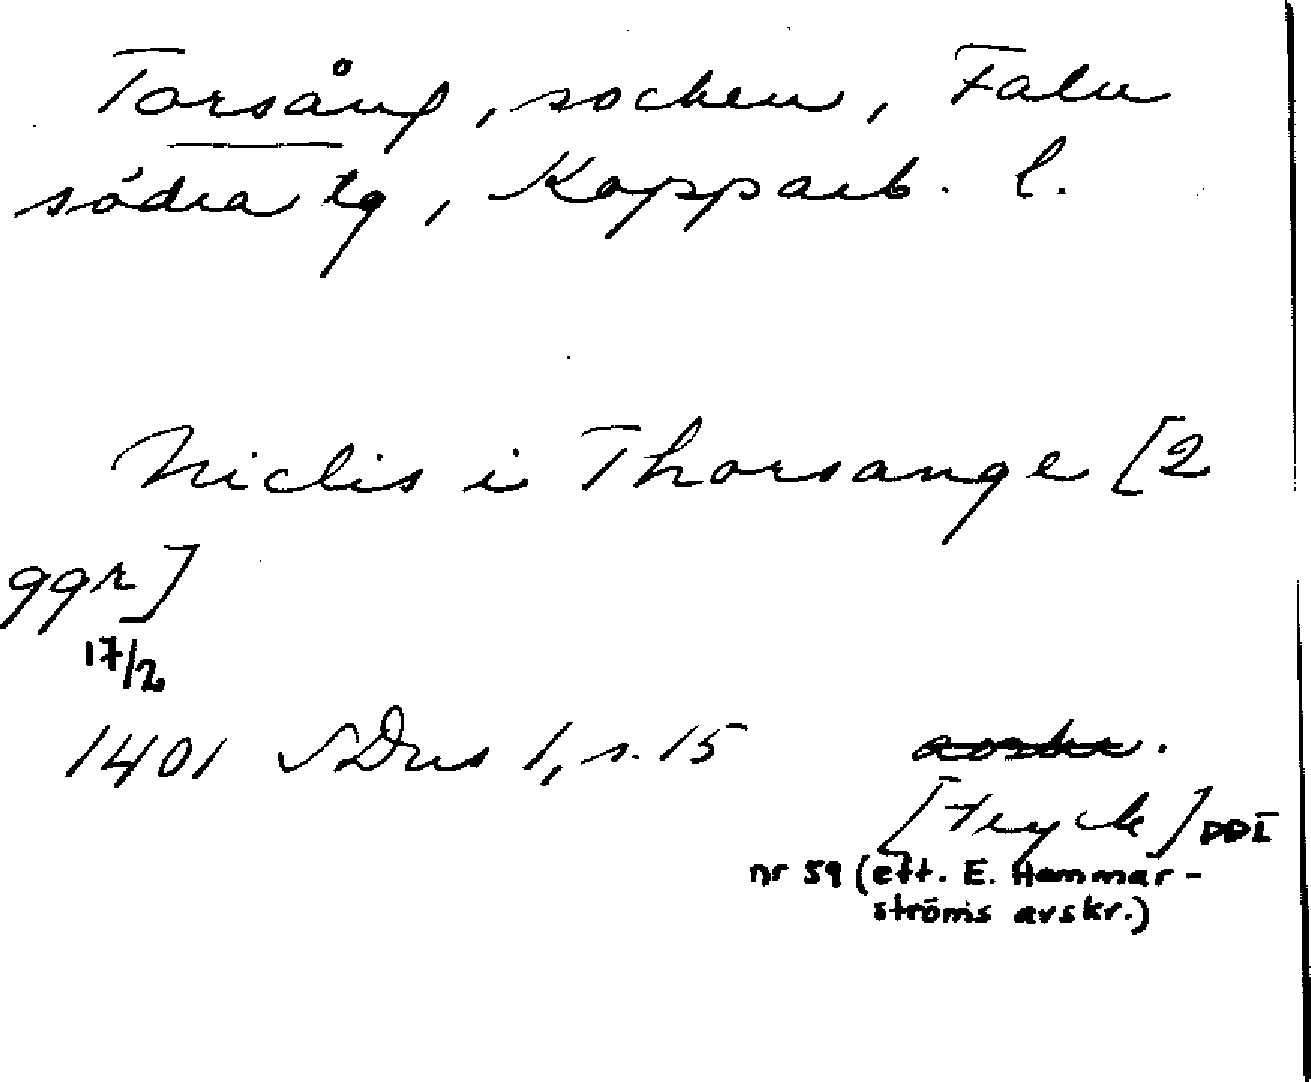 Torsång, socken, Falu
södra tg, Kopparb. l.
Niclis i Thorsange [2
ggr]
17/2
1401 SDns 1, s. 15 avskr.
[tryck] DD I
nr 59 (eft. E. Hammar-
ströms avskr.)